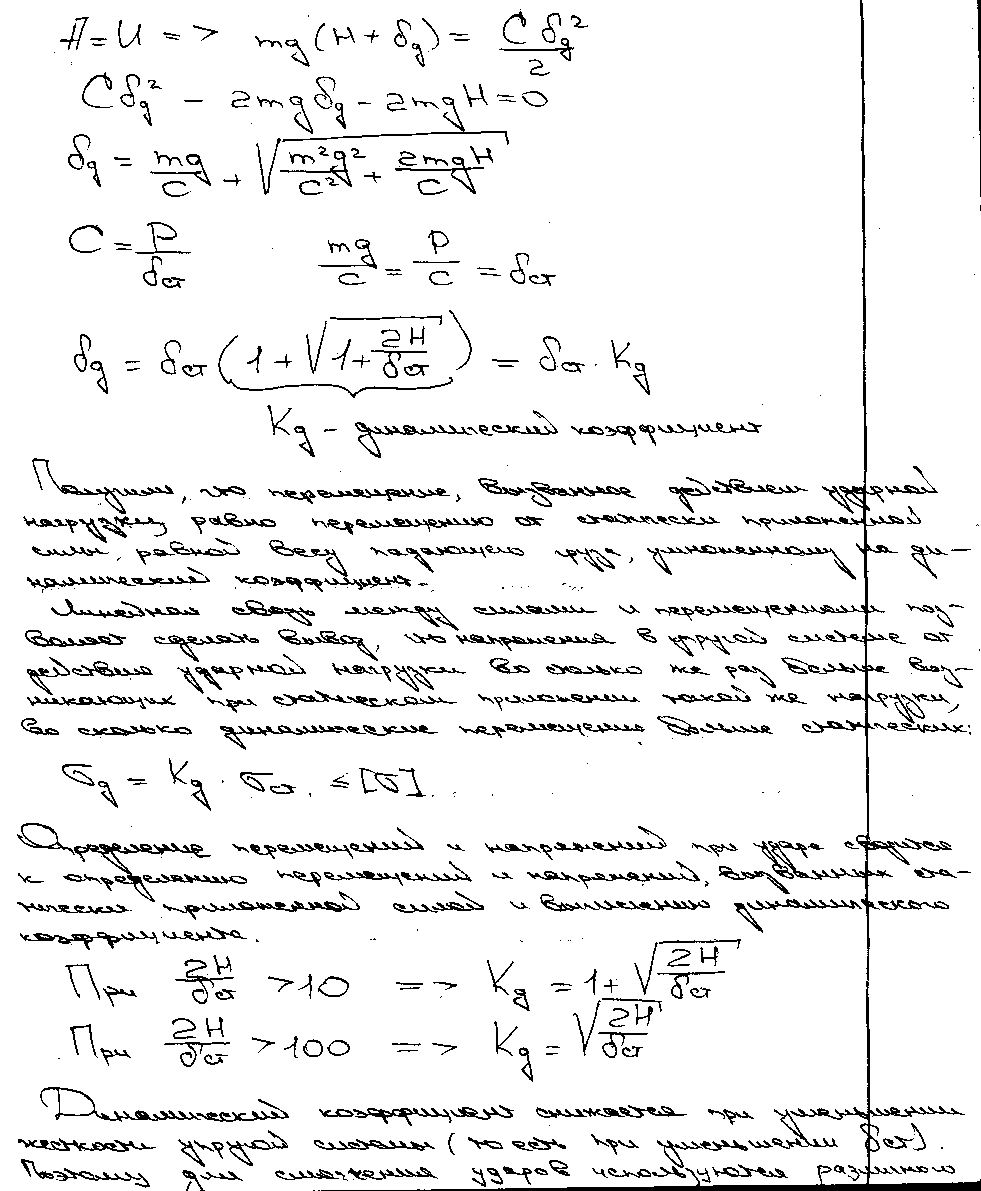 A = U => mg(H + δд) = Cδд²/2
Cδд² - 2mgδд - 2mgH = 0
δд = mg/C + √(m²g²/C² + 2mgH/C)
C = P/δст mg/C = P/C = δст
δд = δст (1 + √(1 + 2H/δст)) = δст · Kд
Kд – динамический коэффициент
Получили, что перемещение, вызванное действием ударной
нагрузки, равно перемещению от статически приложенной
силы, равной весу падающего груза, умноженному на ди-
намический коэффициент.
Линейная связь между силами и перемещениями поз-
воляет сделать вывод, что напряжения в упругой системе от
действия ударной нагрузки во столько же раз больше воз-
никающих при статическом приложении такой же нагрузки,
во сколько динамические перемещения больше статических:
σд = Kд · σст. ≤ [σ]
Определение перемещений и напряжений при ударе сводится
к определению перемещений и напряжений, вызванных ста-
тически приложенной силой и вычислению динамического
коэффициента.
При 2H/δст > 10 => Kд = 1 + √(2H/δст)
При 2H/δст > 100 => Kд = √(2H/δст)
Динамический коэффициент снижается при уменьшении
жесткости упругой системы (то есть при уменьшении δст).
Поэтому для смягчения ударов используются различного